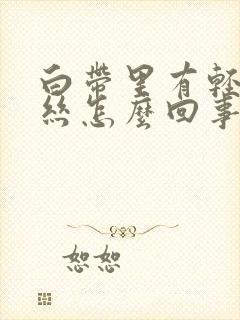 白帶里有輕
絲怎麼回事
恕恕